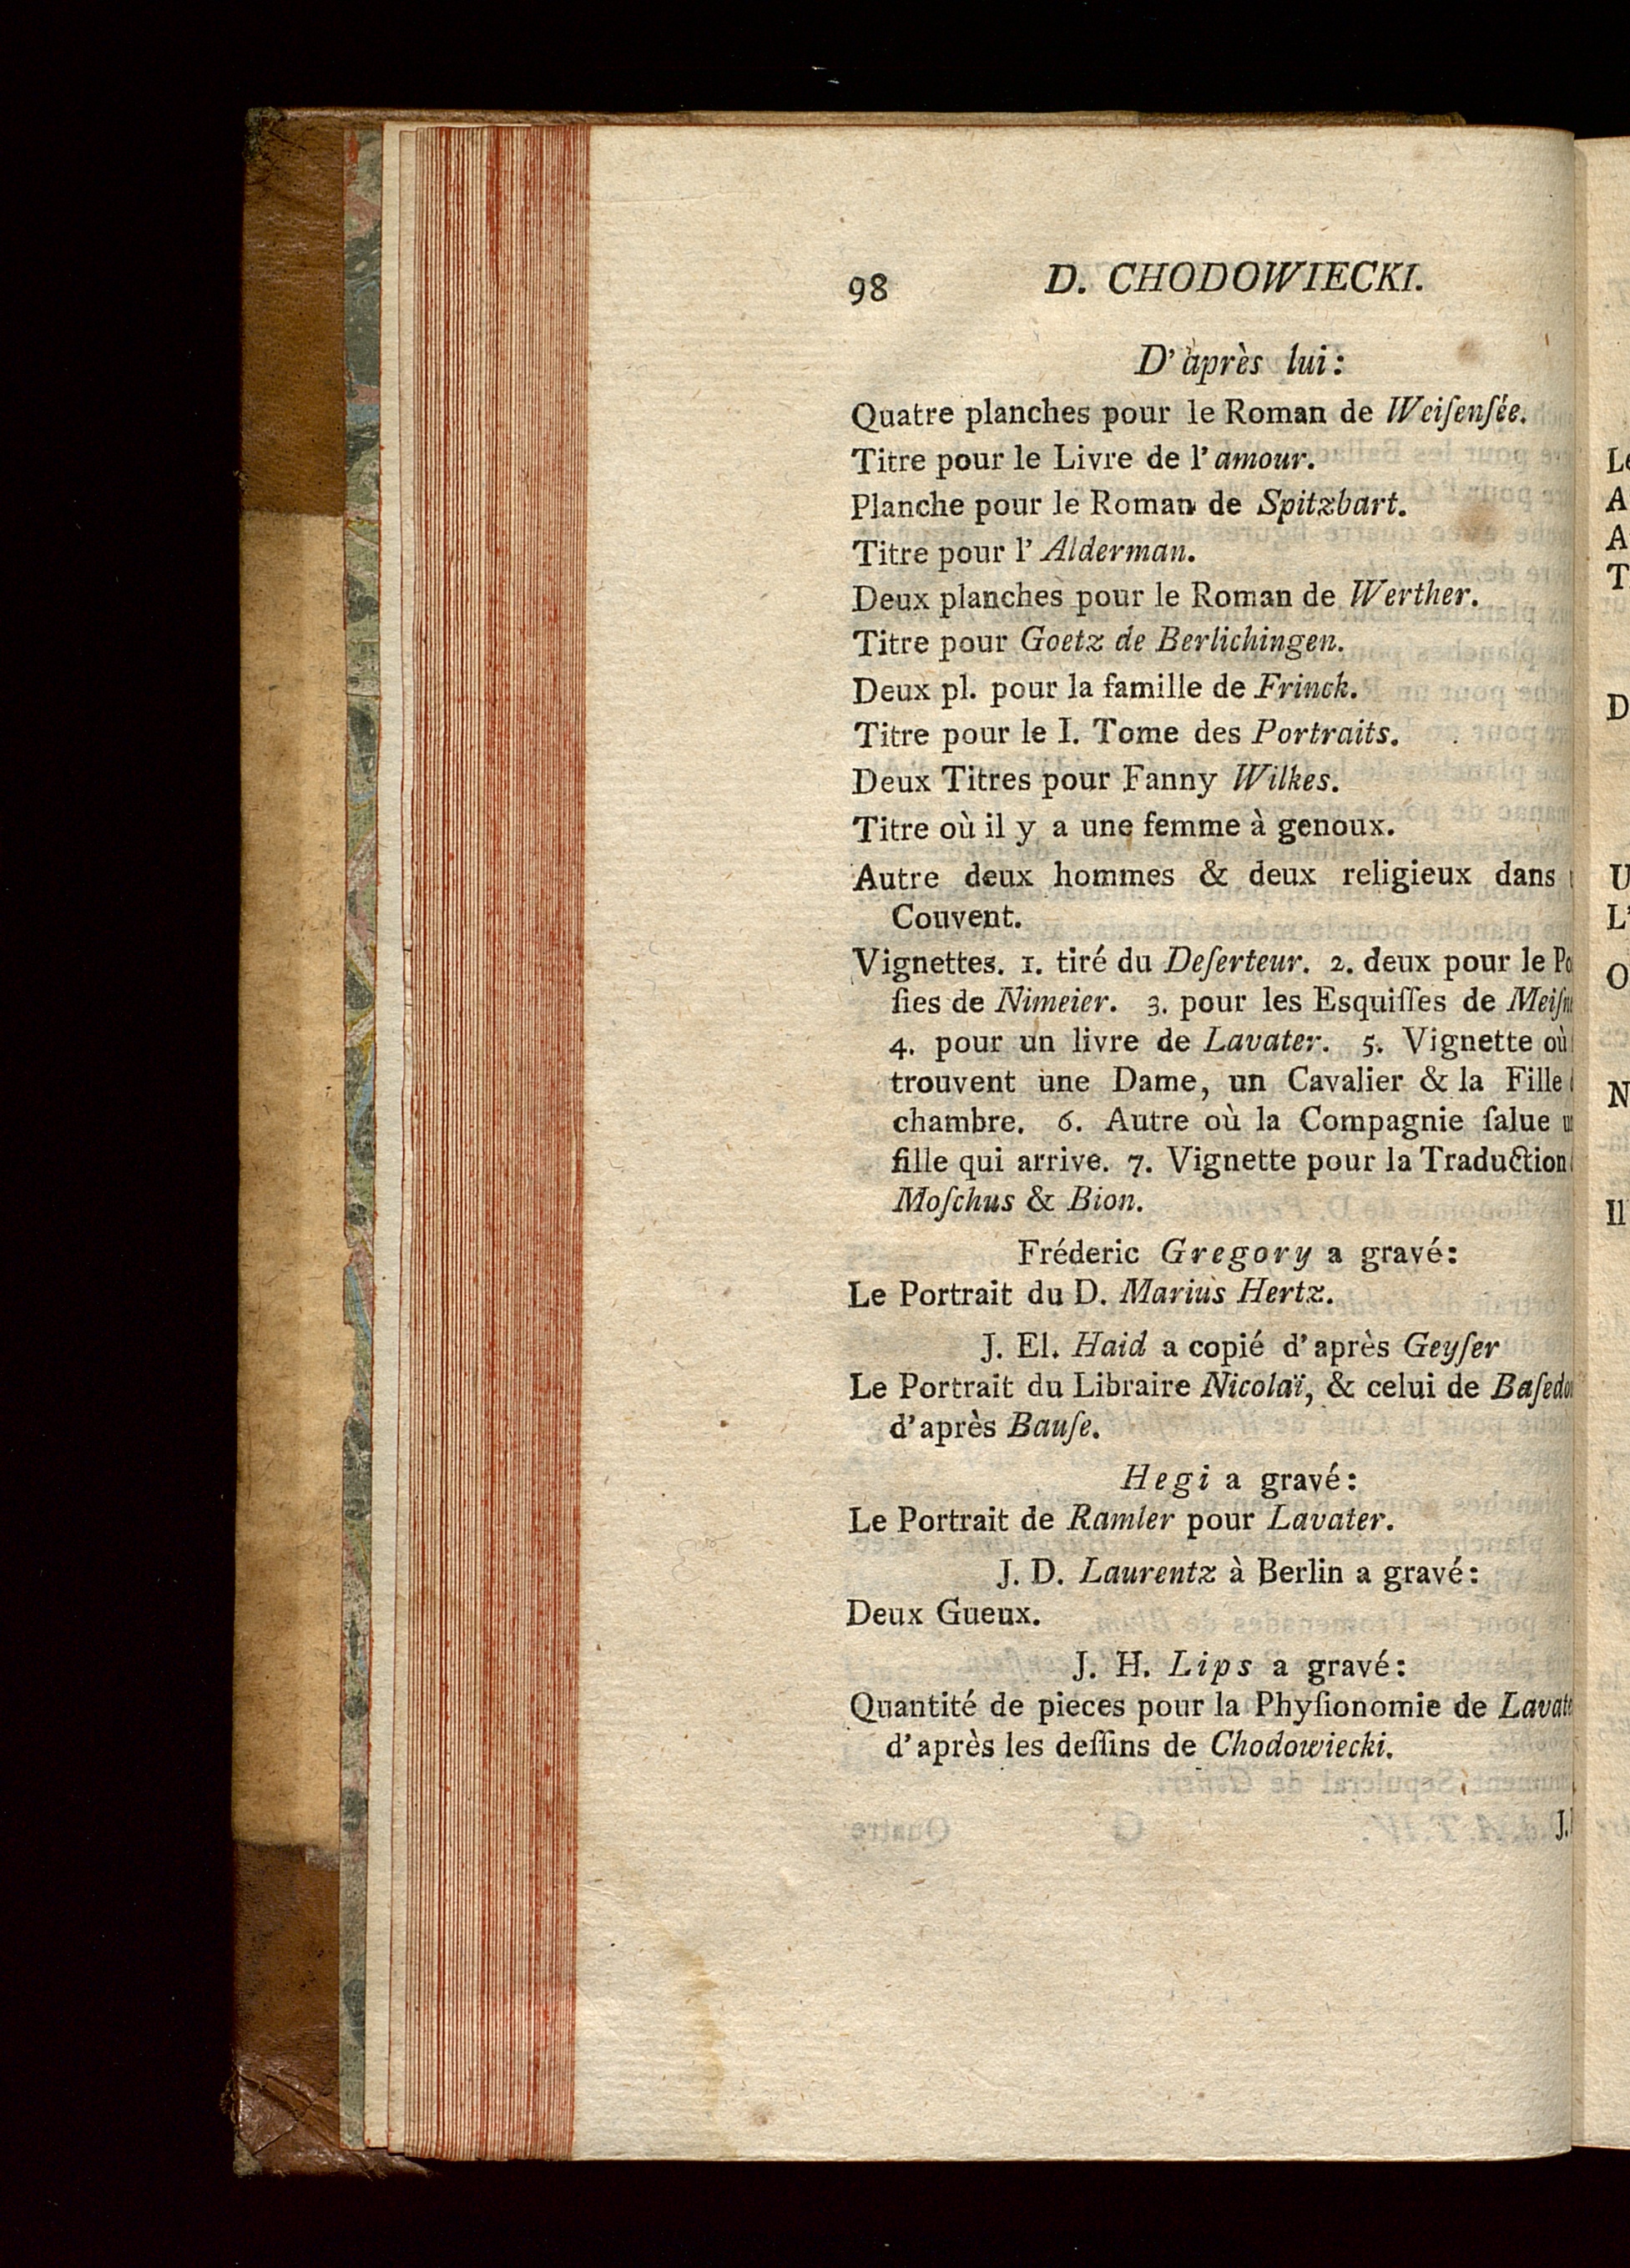 98 D. CHODOWIECKI.
D'après lui:
Quatre planches pour le Roman de Weiſenſée.
Titre pour le Livre de l'amour.
Planche pour le Roman de Spitzbart.
Titre pour l'Alderman.
Deux planches pour le Roman de Werther.
Titre pour Goetz de Berlichingen.
Deux pl. pour la famille de Frinck.
Titre pour le I. Tome des Portraits.
Deux Titres pour Fanny Wilkes.
Titre où il y a une femme à genoux.
Autre deux hommes & deux religieux dans
Couvent.
Vignettes. 1. tiré du Deſerteur. 2. deux pour le Po
ſies de Nimeier. 3. pour les Esquiſſes de Meiſn
4. pour un livre de Lavater. 5. Vignette où
trouvent une Dame, un Cavalier & la Fille
chambre. 6. Autre où la Compagnie ſalue u
fille qui arrive. 7. Vignette pour la Traduction
Moſchus & Bion.
Fréderic Gregory a gravé:
Le Portrait du D. Marius Hertz.
J. El. Haid a copié d'après Geyſer
Le Portrait du Libraire Nicolaï, & celui de Baſedo
d'après Bauſe.
Hegi a gravé:
Le Portrait de Ramler pour Lavater.
J. D. Laurentz à Berlin a gravé:
Deux Gueux.
J. H. Lips a gravé:
Quantité de pieces pour la Phyſionomie de Lavate
d'après les deſſins de Chodowiecki.
J.
L
A
A
T
D
U
L'
O
N
Il